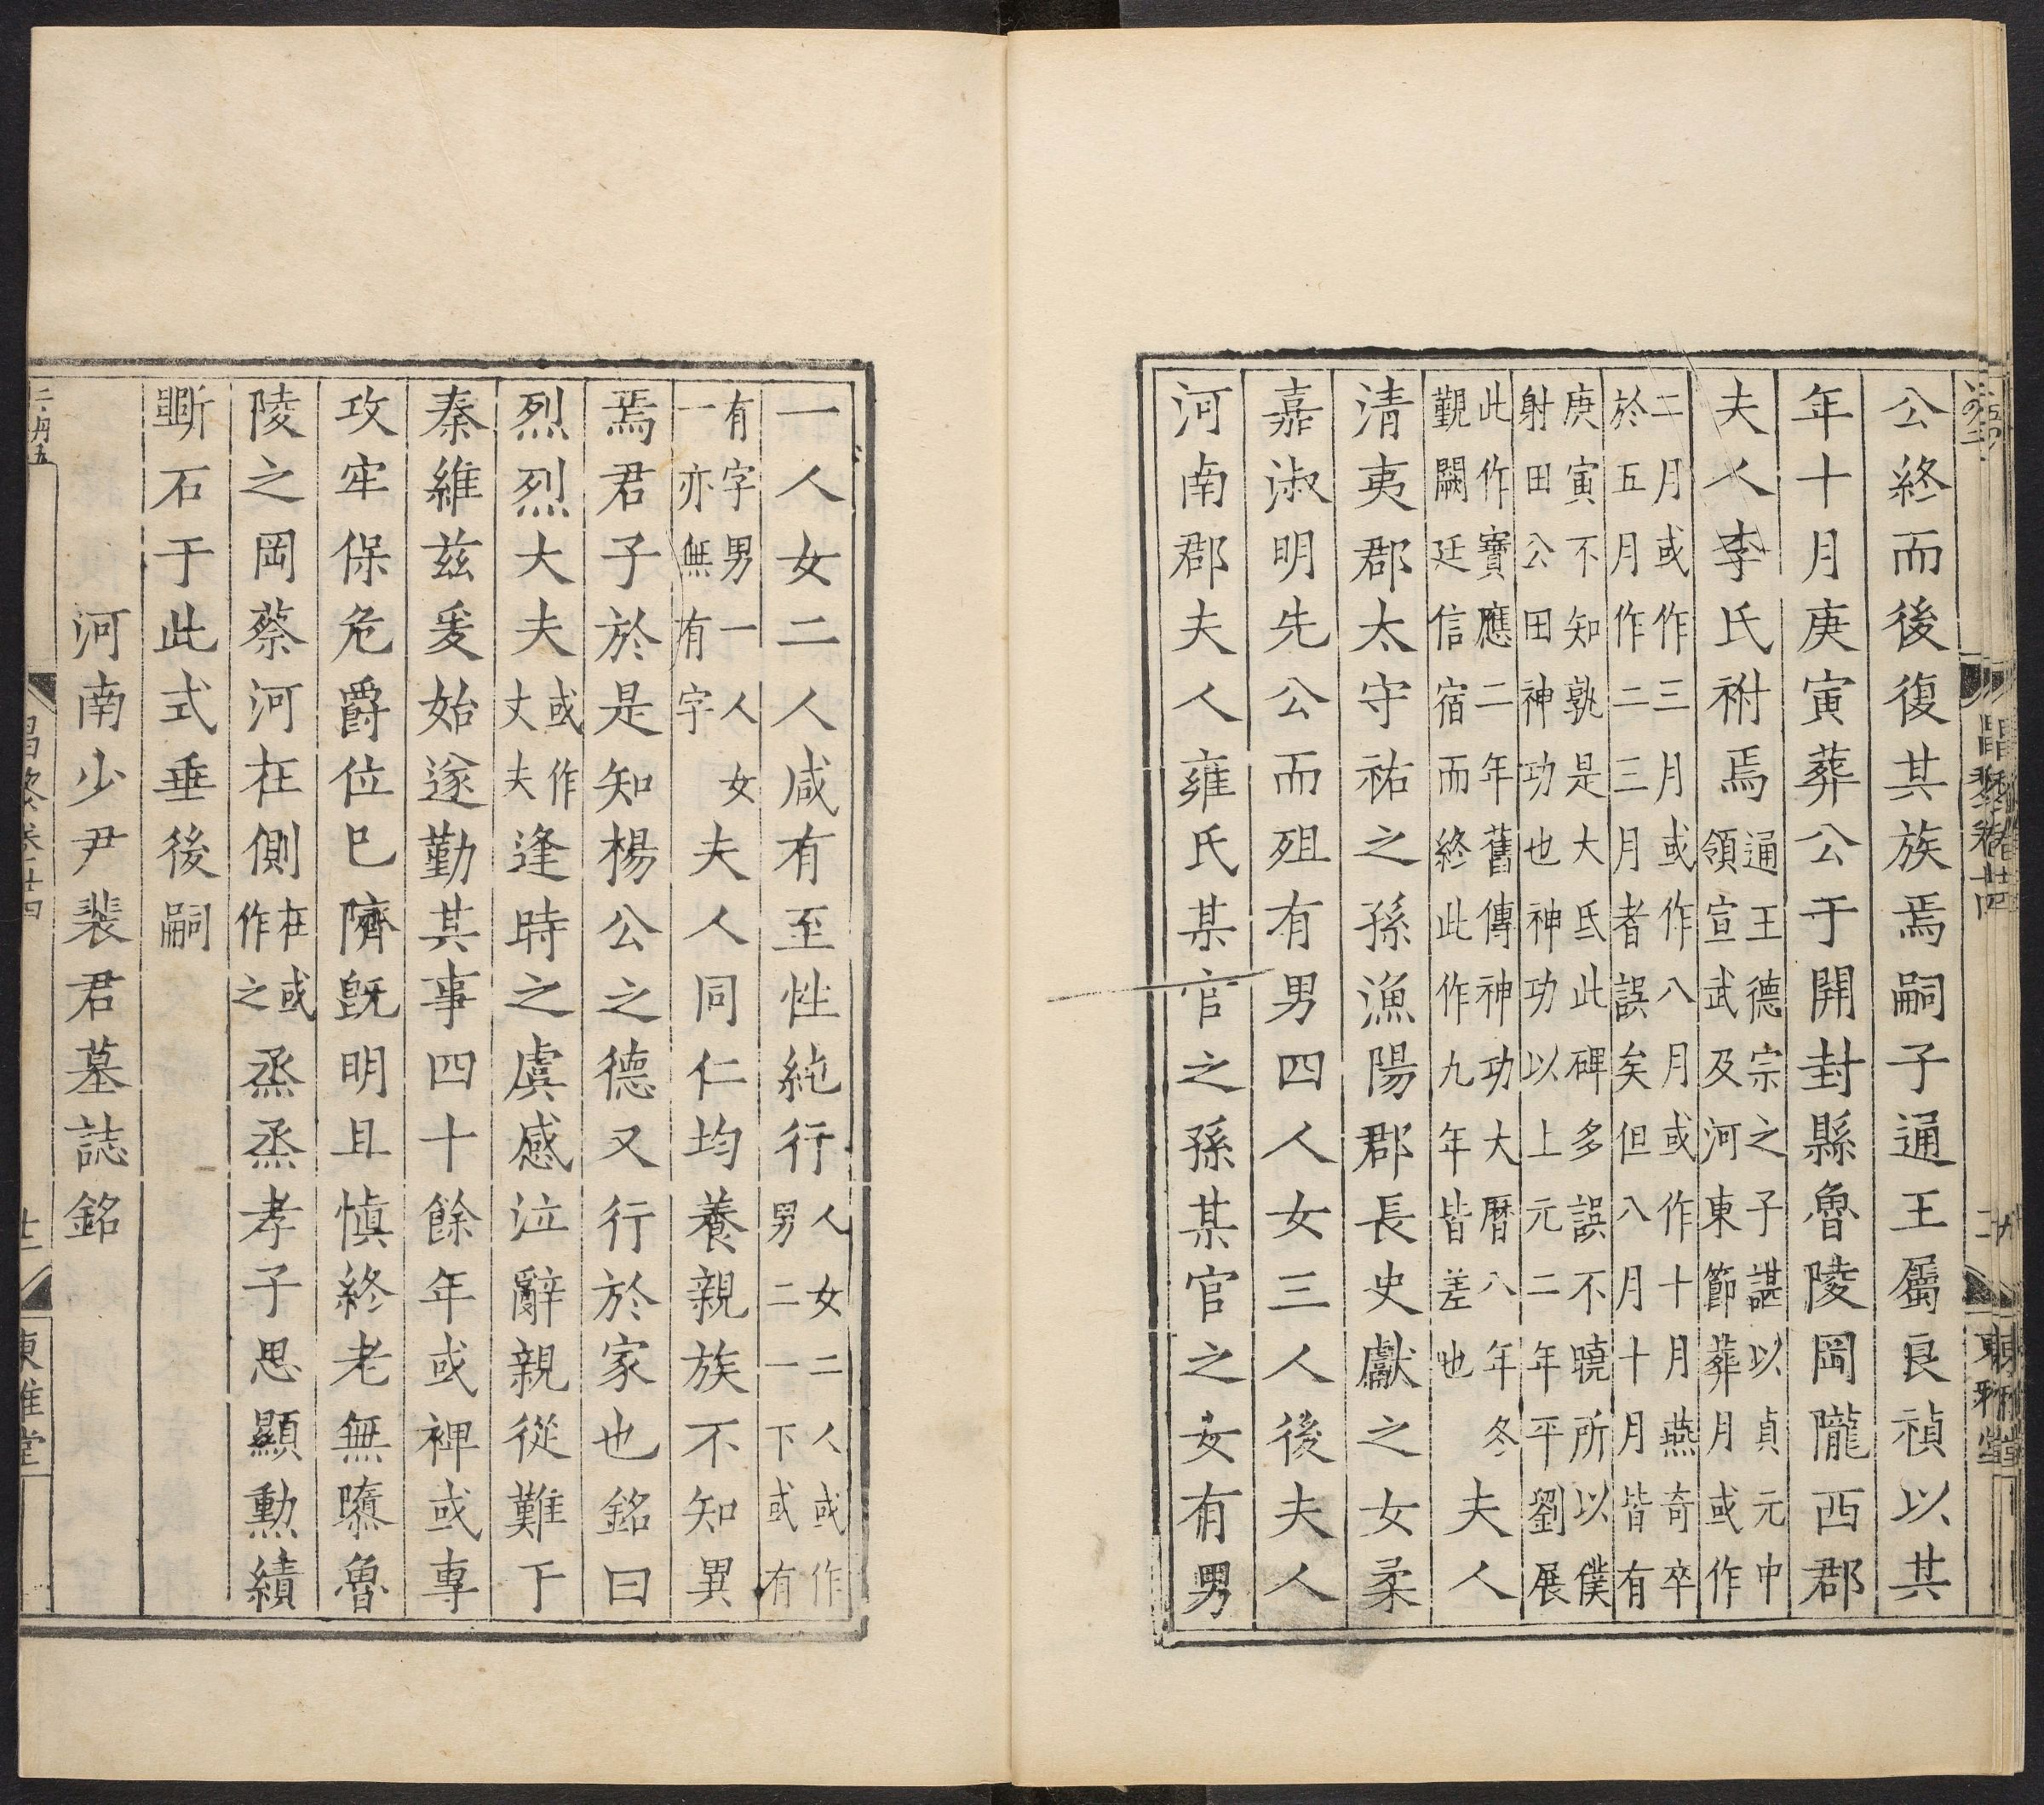 公終而後復其族焉嗣子通王屬良禎以其
年十月庚寅葬公于開封縣魯陵岡隴西郡
夫人李氏祔焉通王德宗之子諶以貞元中領宣武及河東節葬月或作
二月或作三月或作八月或作十月燕奇卒於五月作二三月者誤矣但八月十月皆有
庚寅不知孰是大氐此碑多誤不曉所以僕射田公田神功也神功以上元二年平劉展
此作寶應二年舊傳神功大曆八年冬覲闕廷信宿而終此作九年皆差也夫人
清夷郡太守祐之孫漁陽郡長史獻之女柔
嘉淑明先公而殂有男四人女三人後夫人
河南郡夫人雍氏某官之孫某官之女有男
一人女二人咸有至性純行人女二人或作男二一下或有
有字男一人女一亦無有字夫人同仁均養親族不知異
焉君子於是知楊公之德又行於家也銘曰
烈烈大夫或作丈夫逢時之虞感泣辭親從難于
秦維茲爰始遂勤其事四十餘年或裨或專
攻牢保危爵位已隮旣明且愼終老無隳魯
陵之岡蔡河在側在或作之烝烝孝子思顯勳績
斲石于此式垂後嗣
河南少尹裴君墓誌銘
昌黎卷廿四
東雅堂